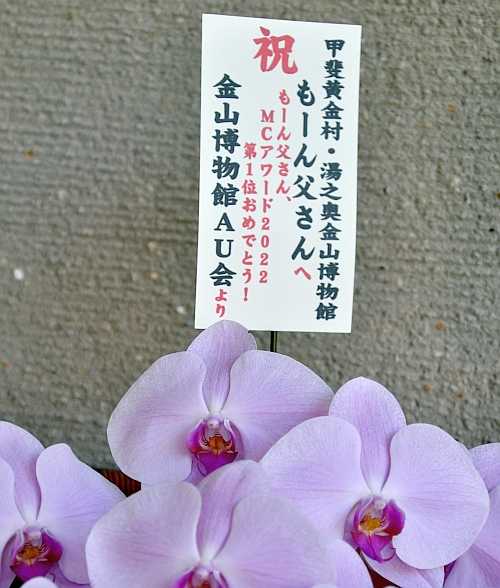 祝
甲斐黄金村・湯之奥金山博物館
もーん父さんへ
もーん父さん、
MCアワード2022
第1位おめでとう！
金山博物館AU会より